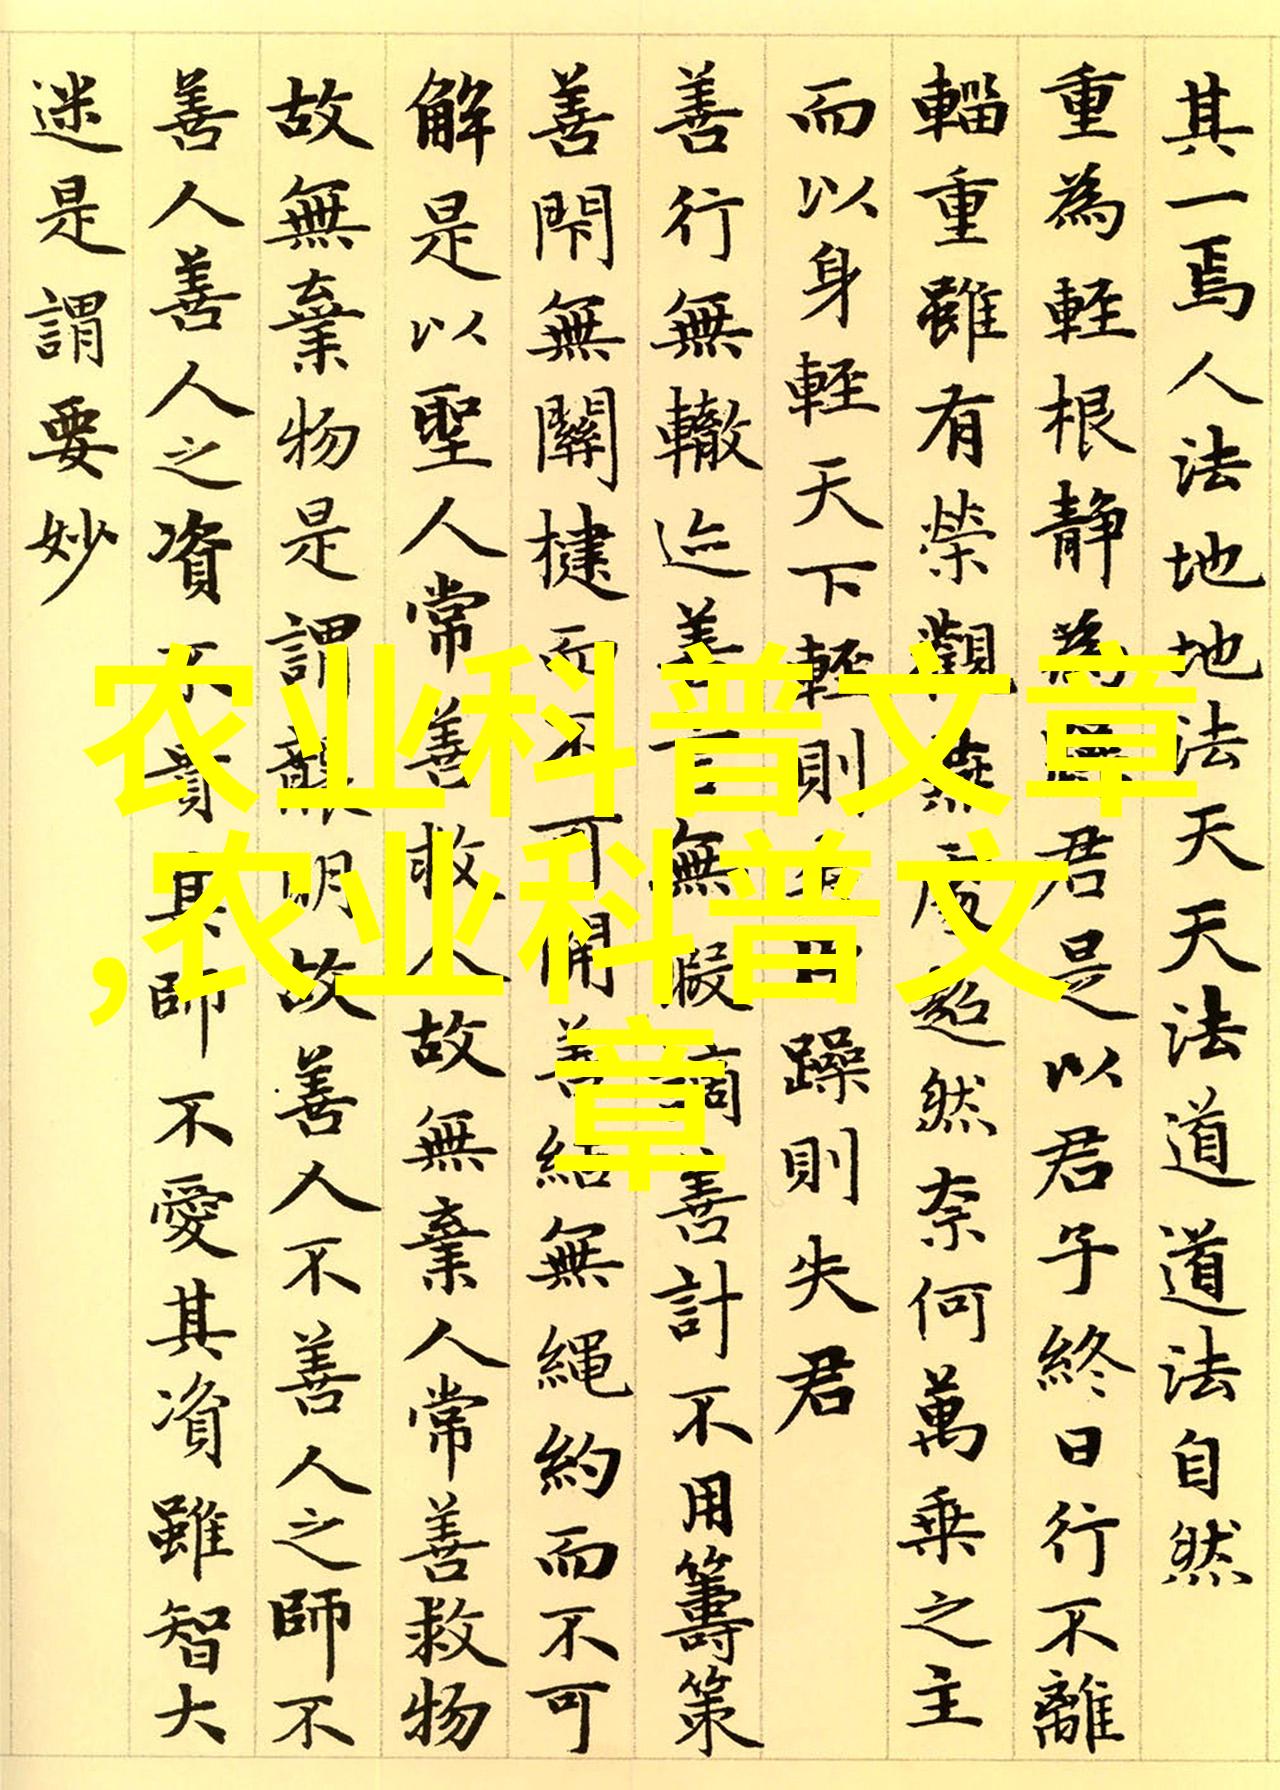 其一焉人法地地法天天法道道法自然
重為輕根靜為躁君是以君子終日行不離
輜重雖有榮觀燕處超然奈何萬乘之主
而以身輕天下輕則失臣躁則失君
善行無轍迹善言無瑕謫善計不用籌策
善閇無關楗而不可開善結無繩約而不可
解是以聖人常善救人故無棄人常善救物
故無棄物是謂襲明故善人不善人之師不
善人善人之資不貴其師不愛其資雖智大
迷是謂要妙
农业科普文章
,农业科普文
章